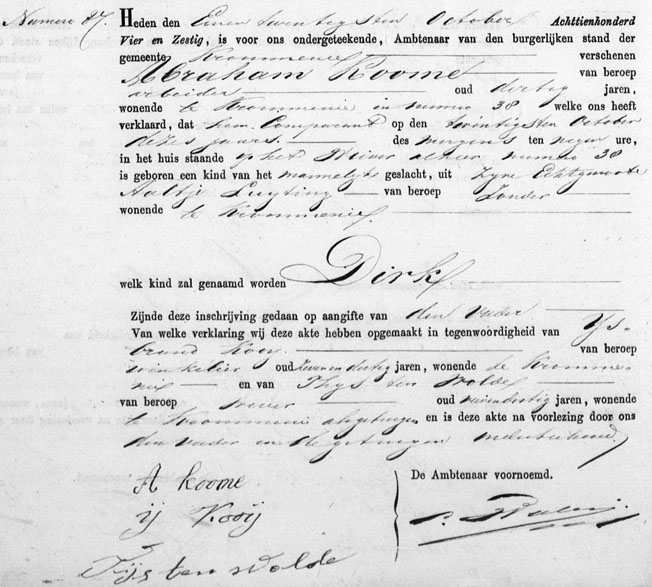 Numero 87.
Heden den Eenen twintigsten October Achttienhonderd
Vier en Zestig, is voor ons ondergeteekende, Ambtenaar van den burgerlijken stand der
gemeente Krommenie verschenen
Abraham Koome van beroep
arbeider oud dertig jaren,
wonende te Krommenie in numero 38 welke ons heeft
verklaard, dat hem Comparant op den twintigsten October
dezes jaars. des morgens ten negen ure,
in het huis staande numero 38
is geboren een kind van het mannelijk geslacht, uit Zyne Echtgenoote
Aaltje van beroep Zonder
wonende te Krommenie.
welk kind zal genaamd worden Dirk
Zijnde deze inschrijving gedaan op aangifte van den vader
Van welke verklaring wij deze akte hebben opgemaakt in tegenwoordigheid van Ys-
brand Kooy van beroep
winkelier oud dertig jaren, wonende te Kromme-
nie en van Thys ten Wolde
van beroep wever oud jaren, wonende
te Krommenie als getuigen en is deze akte na voorlezing door ons
den vader en de getuigen onderteekend
De Ambtenaar voornoemd.
A koome
ij Kooij
Tijs ten wolde